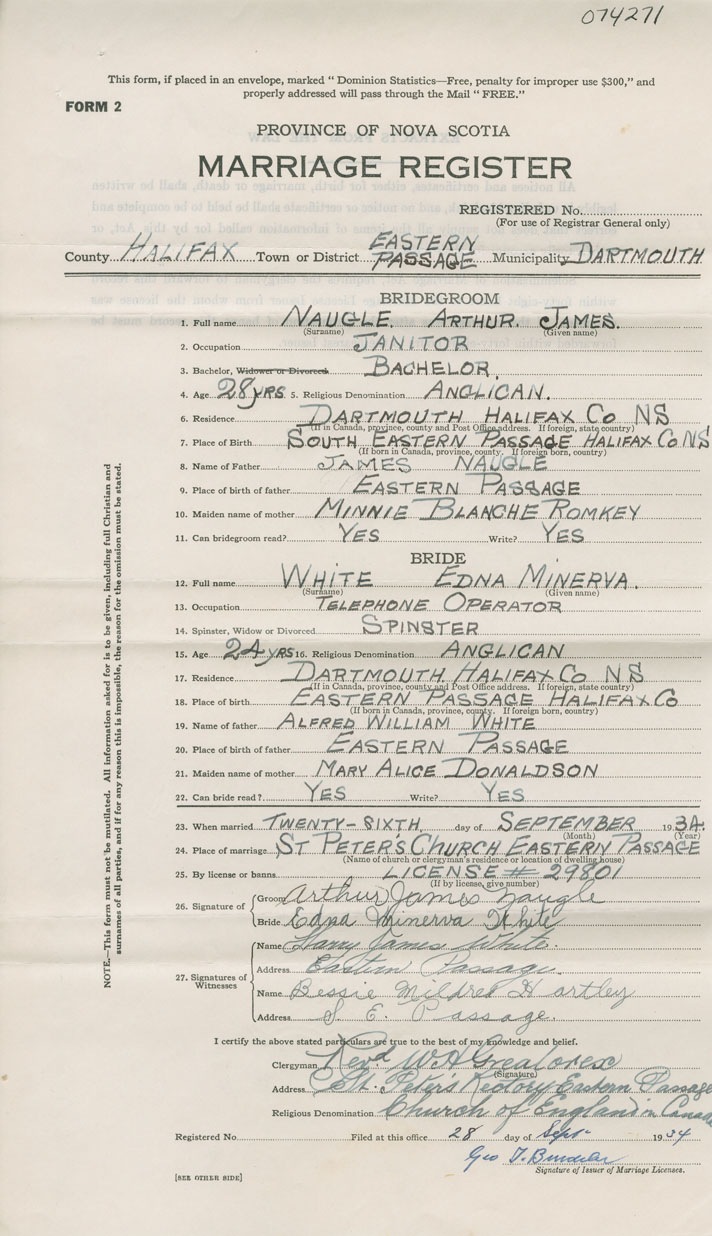 074271
This form, if placed in an envelope, marked " Dominion Statistics—Free, penalty for improper use $300," and
properly addressed will pass through the Mail " FREE."
FORM 2
PROVINCE OF NOVA SCOTIA
MARRIAGE REGISTER
REGISTERED No.
(For use of Registrar General only)
County HALIFAX Town or District EASTERN PASSAGE Municipality DARTMOUTH
BRIDEGROOM
1. Full name NAUGLE. ARTHUR. JAMES.
(Surname) (Given name)
2. Occupation JANITOR
3. Bachelor, Widower or Divorced BACHELOR.
4. Age 28 yRS 5. Religious Denomination ANGLICAN.
6. Residence DARTMOUTH HALIFAX Co NS
(If in Canada, province, county and Post Office address. If foreign, state country)
7. Place of Birth SOUTH EASTERN PASSAGE HALIFAX Co NS
(If born in Canada, province, county. If foreign born, country)
8. Name of Father JAMES NAUGLE
9. Place of birth of father EASTERN PASSAGE
10. Maiden name of mother MINNIE BLANCHE ROMKEY
11. Can bridegroom read? YES Write? YES
BRIDE
12. Full name WHITE EDNA MINERVA.
(Surname) (Given name)
13. Occupation TELEPHONE OPERATOR
14. Spinster, Widow or Divorced SPINSTER
15. Age 24 yRS 16. Religious Denomination ANGLICAN
17. Residence DARTMOUTH HALIFAX Co NS
(If in Canada, province, county and Post Office address. If foreign, state country)
18. Place of birth EASTERN PASSAGE HALIFAX Co
(If born in Canada, province, county. If foreign born, country)
19. Name of father ALFRED WILLIAM WHITE
20. Place of birth of father EASTERN PASSAGE
21. Maiden name of mother MARY ALICE DONALDSON
22. Can bride read? YES Write? YES
23. When married TWENTY-SIXTH day of SEPTEMBER 1934.
(Month) (Year)
24. Place of marriage ST PETER'S CHURCH EASTERN PASSAGE
(Name of church or clergyman's residence or location of dwelling house)
25. By license or banns LICENSE # 29801
(If by license, give number)
26. Signature of
Groom Arthur James Naugle
Bride Edna Minerva White
27. Signatures of Witnesses
Name Harry James White.
Address Eastern Passage.
Name Bessie Mildred Hartley
Address S. E. Passage.
I certify the above stated particulars are true to the best of my knowledge and belief.
Clergyman Revd W A Greatorex
(Signature)
Address St. Peter's Rectory Eastern Passage
Religious Denomination Church of England in Canada
Registered No. Filed at this office 28 day of Sept. 1934
Geo T.
Signature of Issuer of Marriage Licenses.
[SEE OTHER SIDE]
NOTE.—This form must not be mutilated. All information asked for is to be given, including full Christian and
surnames of all parties, and if for any reason this is impossible, the reason for the omission must be stated.